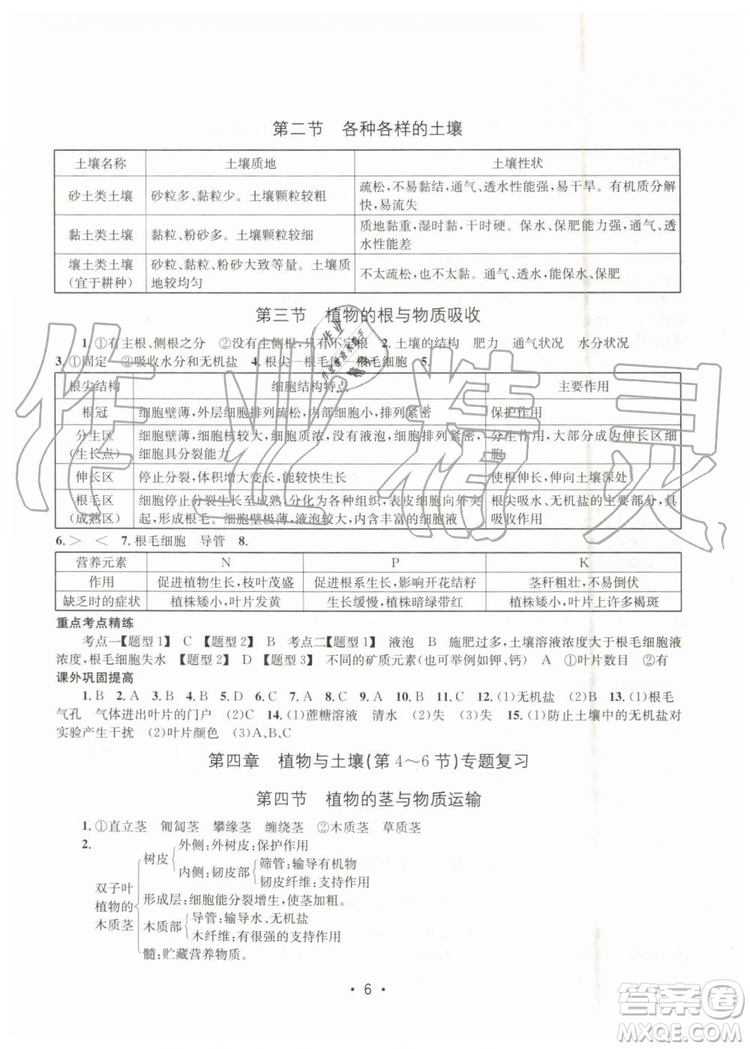 第二节 各种各样的土壤
土壤名称 土壤质地 土壤性状
砂土类土壤 砂粒多、黏粒少。土壤颗粒较粗 疏松,不易黏结,通气、透水性能强,易干旱。有机质分解快,易流失
黏土类土壤 黏粒、粉砂多。土壤颗粒较细 质地黏重,湿时黏,干时硬。保水、保肥能力强,通气、透水性能差
壤土类土壤(宜于耕种) 砂粒、黏粒、粉砂大致等量。土壤质地较均匀 不太疏松,也不太黏。通气、透水,能保水、保肥
第三节 植物的根与物质吸收
1. ①有主根、侧根之分 ②没有主侧根
2. 土壤的结构 肥力 通气状况 水分状况
3. ①固定 ②吸收水分和无机盐 4. 根尖 根毛细胞 5.
根尖结构 细胞结构特点 主要作用
根冠 细胞壁薄,外层细胞排列疏松,内部细胞小,排列紧密 保护作用
分生区(生长点) 细胞壁薄,细胞核较大,细胞质浓,没有液泡,细胞排列紧密,细胞具分裂能力 分生作用,大部分成为伸长区细胞
伸长区 停止分裂,体积增大变长,能较快生长 使根伸长,伸向土壤深处
根毛区(成熟区) 细胞停止分裂生长至成熟,分化为各种组织,表皮细胞向外突起,形成根毛。细胞壁极薄,液泡较大,内含丰富的细胞液 根尖吸水、无机盐的主要部分,具吸收作用
6. > < 7. 根毛细胞 导管 8.
营养元素 N P K
作用 促进植物生长,枝叶茂盛 促进生长,影响开花结籽 茎秆粗壮,不易倒伏
缺乏时的症状 植株矮小,叶片发黄 生长缓慢,植株暗绿带红 植株矮小,叶片上有许多褐斑
重点考点精练
考点一【题型1】 C 【题型2】 B 考点二【题型1】 液泡 B 施肥过多,土壤溶液浓度大于根毛细胞液
浓度,根毛细胞失水 【题型2】 D 【题型3】 不同的矿质元素(如钾、钙) C ①叶片数目 ②有
课外巩固提高
1. B 2. A 3. C 4. D 5. C 6. B 7. D 8. C 9. D 10. A 11. A 12. B 13. (1)无机盐 (2)C 14. (1)根毛
气孔 气体进出叶片的门户 (2)C 14. (1)蔗糖溶液 清水 (2)失 (3)失 15. (1)防止土壤中的无机盐对
实验产生干扰 (2)叶片颜色 (3)A、B、C
第四章 植物与土壤(第4～6节)专题复习
第四节 植物的茎与物质运输
1. ①直立茎 匍匐茎 攀缘茎 缠绕茎 ②木质茎 草质茎
2.
双子叶植物的木质茎
树皮
外侧:外树皮:保护作用
内侧:韧皮部
筛管:输导有机物
韧皮纤维:有支持作用
形成层:细胞能分裂增生,使茎加粗。
木质部
导管:输导水、无机盐
木纤维:有很强的支持作用
髓:贮藏营养物质。
• 6 •
作业精灵
答案圈
MXQE.COM